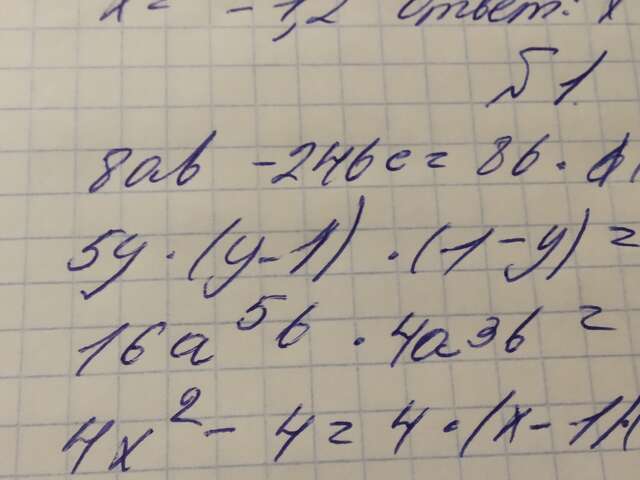 x = -1,2 Ответ: x
№1.
8ab - 24bc = 8b ·
5y · (y-1) · (-1-y) =
16a⁵b · 4a³b =
4x² - 4 = 4 · (x-1)·(